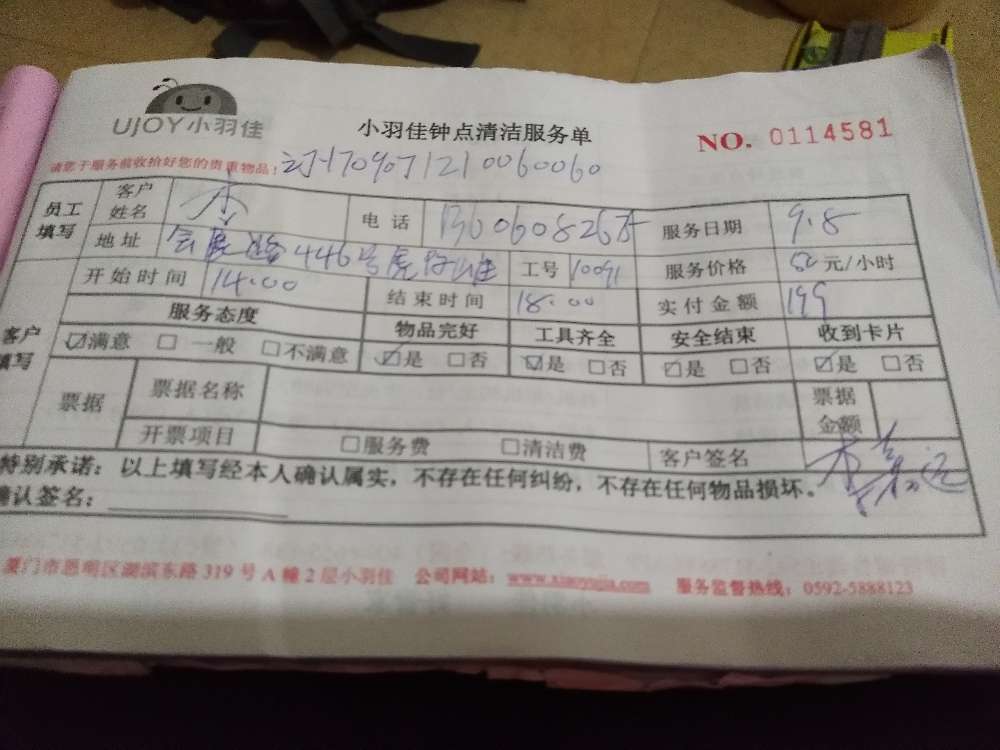 UJOY小羽佳
小羽佳钟点清洁服务单
NO. 0114581
请您于服务前收拾好您的贵重物品:
员工填写 客户姓名 李 电话 服务日期 9.8
地址 会展路446号 工号 10091 服务价格 元/小时
开始时间 14.00 结束时间 18.00 实付金额 199
客户填写 服务态度 物品完好 工具齐全 安全结束 收到卡片
☑满意 □一般 □不满意 ☑是 □否 ☑是 □否 ☑是 □否 ☑是 □否
票据 票据名称 票据金额
开票项目 □服务费 □清洁费 客户签名
特别承诺：以上填写经本人确认属实，不存在任何纠纷，不存在任何物品损坏。
确认签名：
厦门市思明区湖滨东路319号A幢2层小羽佳 公司网站：www.xiaoyujia.com 服务监督热线：0592-5888123